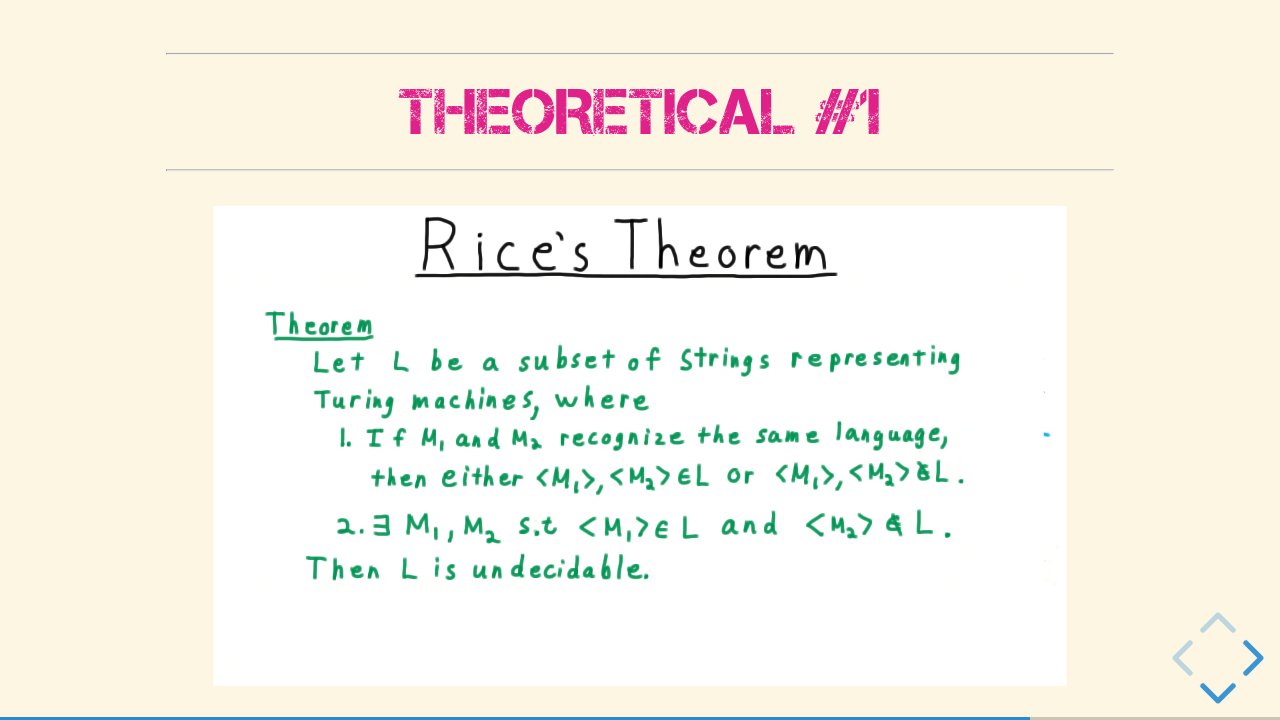 THEORETICAL #1
Rice's Theorem
Theorem
Let L be a subset of Strings representing
Turing machines, where
1. If M₁ and M₂ recognize the same language,
then either <M₁>,<M₂> ∈ L or <M₁>,<M₂> ∉ L.
2. ∃ M₁, M₂ s.t <M₁> ∈ L and <M₂> ∉ L.
Then L is undecidable.